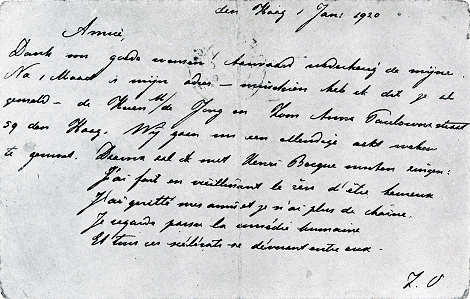 den Haag 1 Jan: 1920
Amice,
Dank voor goede wensen, aanvaard wederkeerig de mijne
Na 1 Maart is mijn adres – misschien heb ik dat je al
gemeld – de Heer M. de Jong en Zoon Anna Paulownastraat
59 den Haag. Wij gaan een ellendige
te gemoet. Daarna zal ik met Henri Becque moeten zingen:
J'ai fait en vieillissant le rêve d'être heureux
J'ai quitté mes amis et je n'ai plus de chaîne.
Je regarde passer la comédie humaine
Et tous ces scélérats se dévorant entre eux.